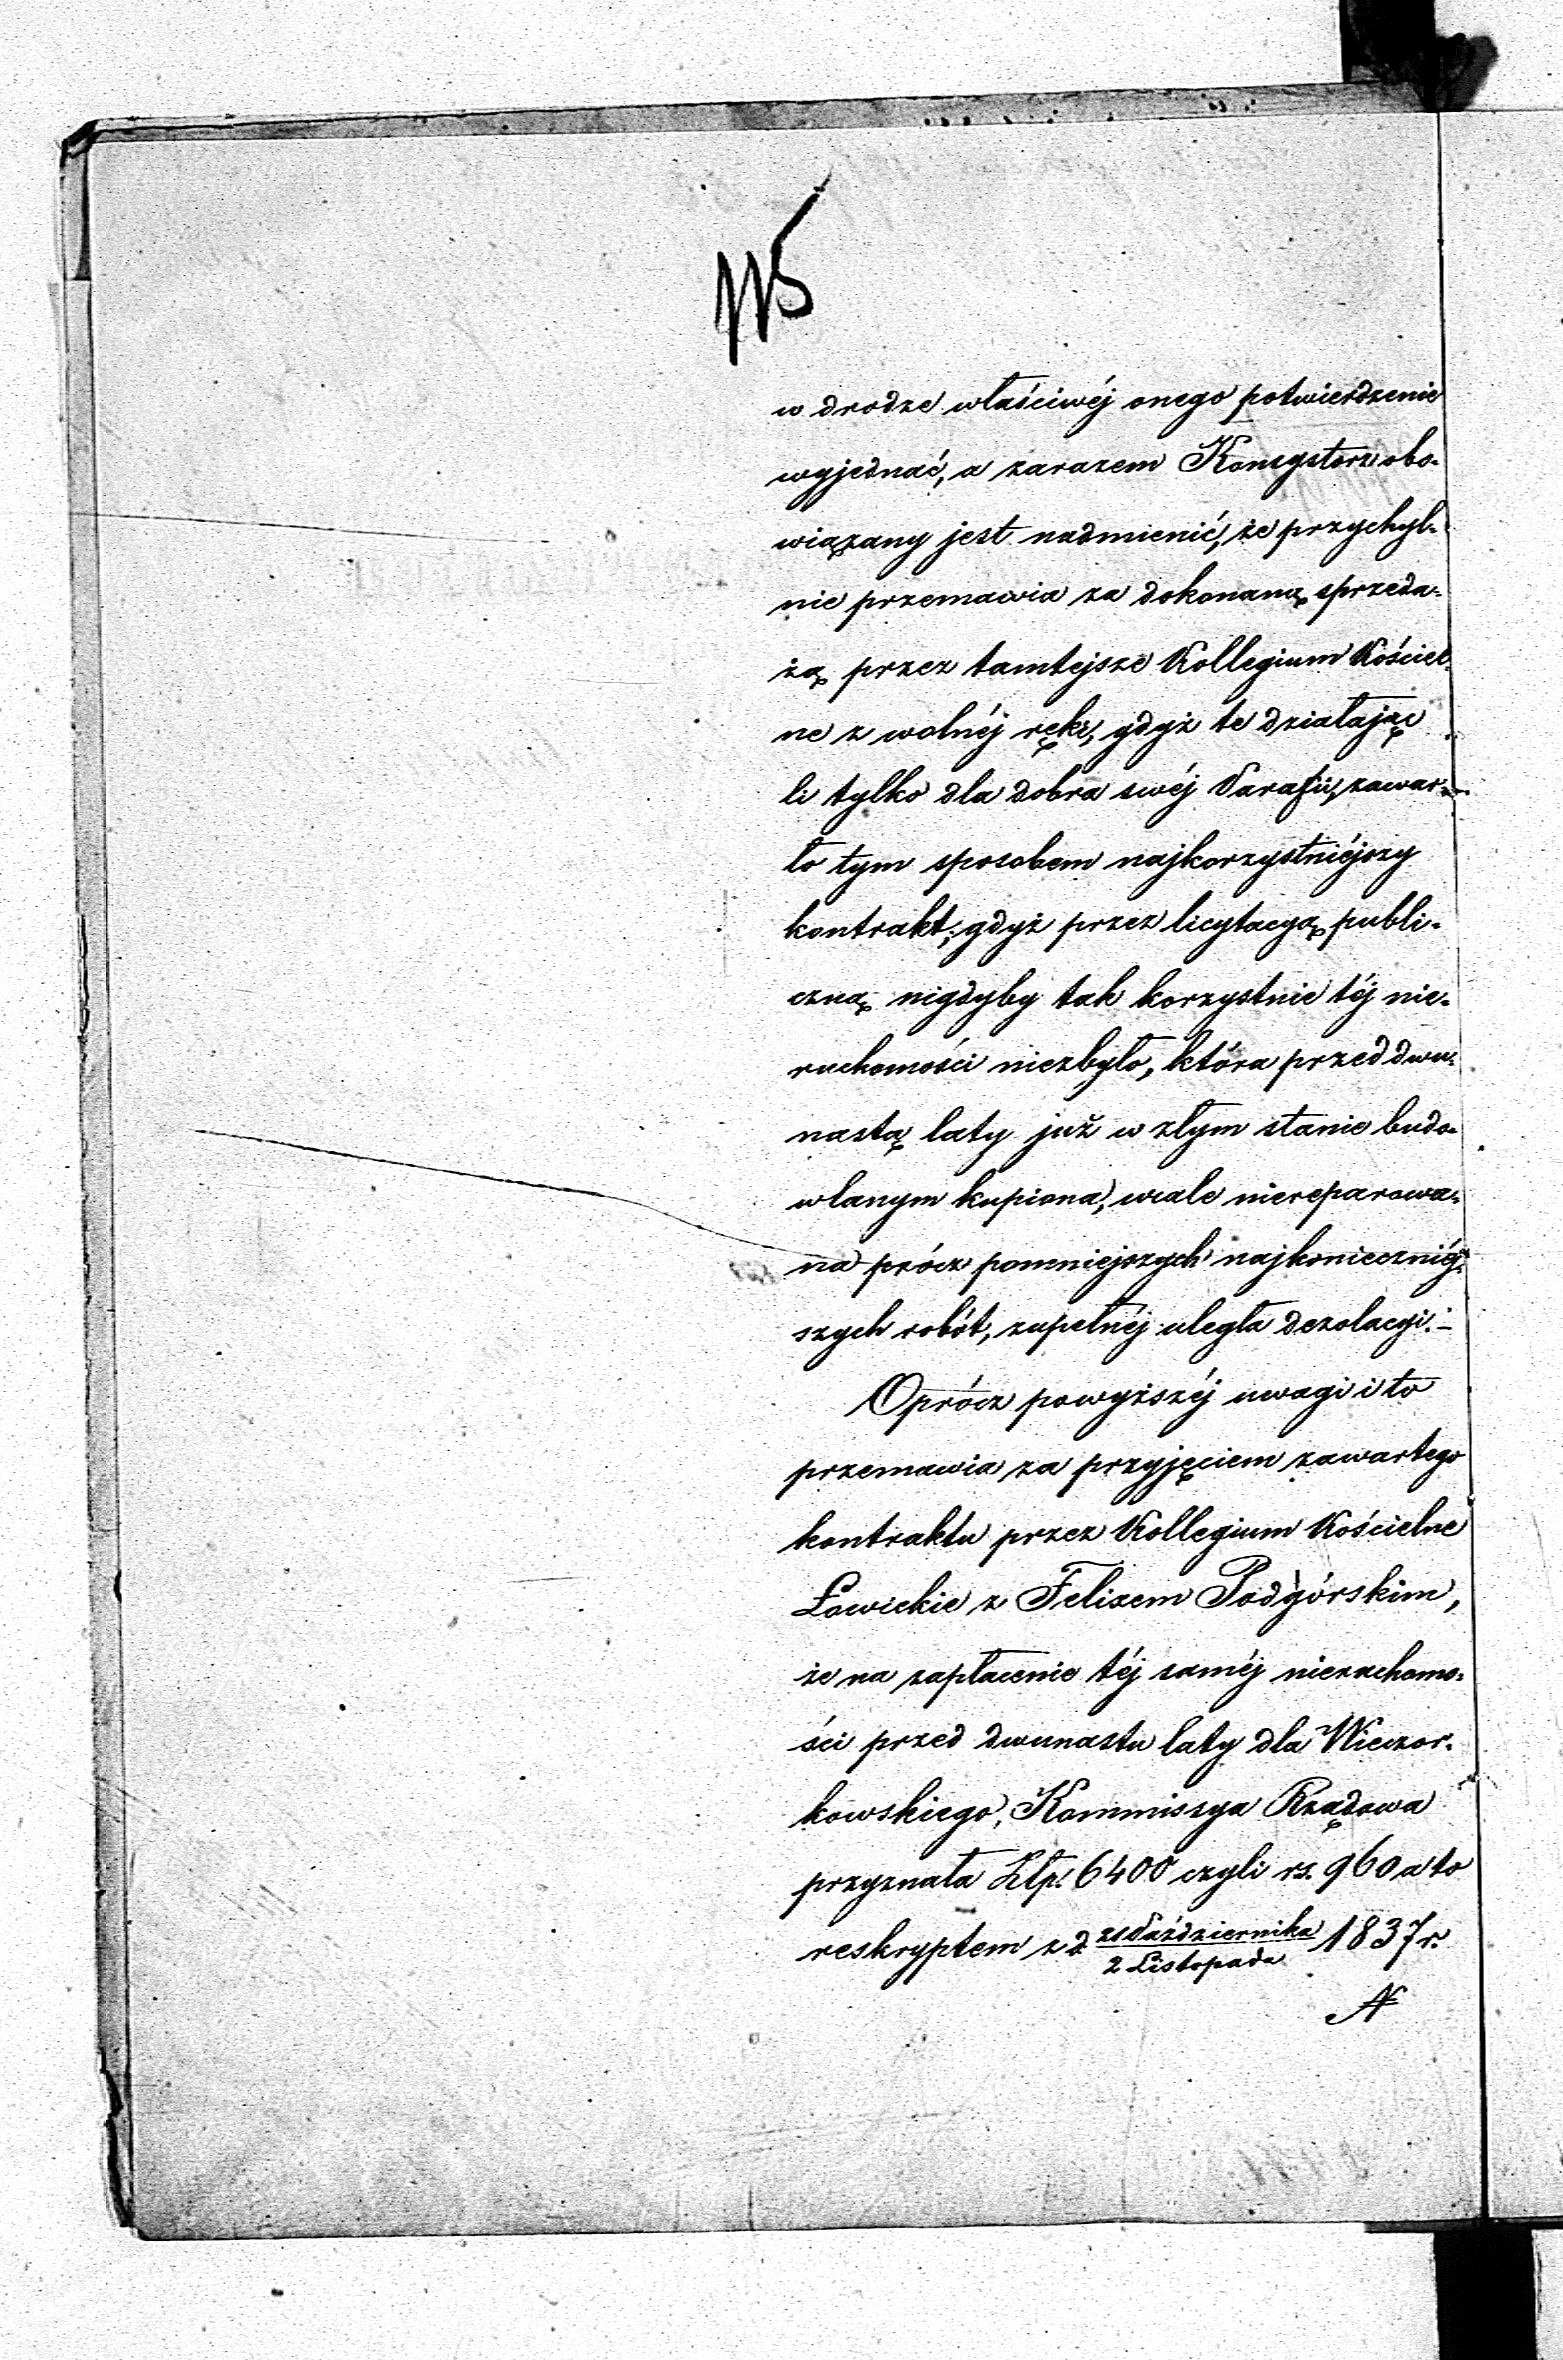 115
w drodze właściwéj onego potwierdzenie
wyjednać, a zarazem Konsystorz obo-
wiązany jest nadmienić, że przychyl-
nie przemawia za dokonaną sprzeda-
żą przez tamtejsze Kollegium Kościel-
ne z wolnéj ręki, gdyż te działając
li tylko dla dobra swéj Parafii, zawar-
ło tym sposobem najkorzystniéjszy
kontrakt; gdyż przez licytacyą publi-
czną nigdyby tak korzystnie téj nie-
ruchomości niezbyło, która przed dwu-
nastą laty już w złym stanie budo-
wlanym kupiona, wcale niereparowa-
na prócz pomniejszych najkonieczniéj-
szych robót, zupełnéj uległa dezolacyi.-
Oprócz powyższéj uwagi i to
przemawia za przyjęciem zawartego
kontraktu przez Kollegium Kościelne
Łowickie z Felixem Podgórskim,
że na zapłacenie téj saméj nieruchomo-
ści przed dwunastu laty dla Wieczor-
kowskiego, Kommissya Rządowa
przyznała Złp. 6400 czyli rs. 960 a to
reskryptem z d. 21 Października / 2 Listopada 1837 r.
N